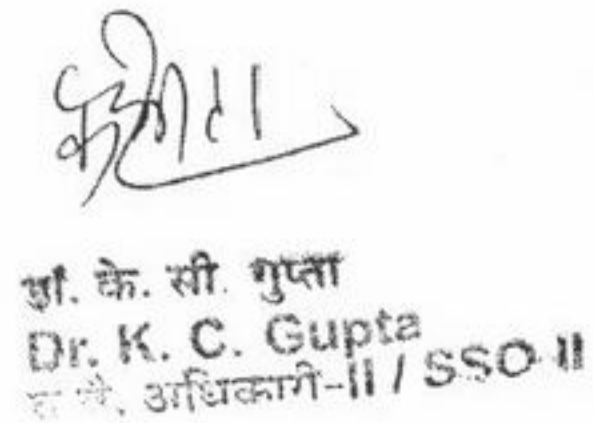 डॉ. के. सी. गुप्ता
Dr. K. C. Gupta
अधिकारी-II / SSO-II